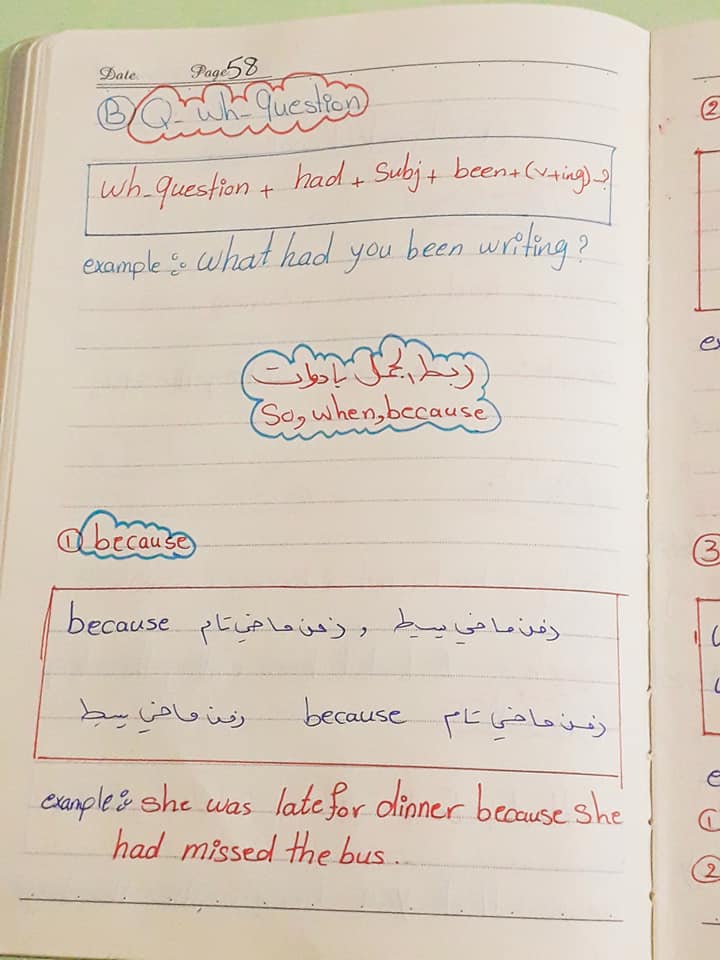 Date Page 58
B Q_ wh_ question
wh_question + had + Subj + been + (v+ing) ?
example : what had you been writing ?
ربط الجمل بأدوات
So, when, because
① because
because زمن ماضي تام , زمن ماضي بسيط
زمن ماضي بسيط because زمن ماضي تام
example : she was late for dinner because she
had missed the bus.
②
ex
③
e
①
②